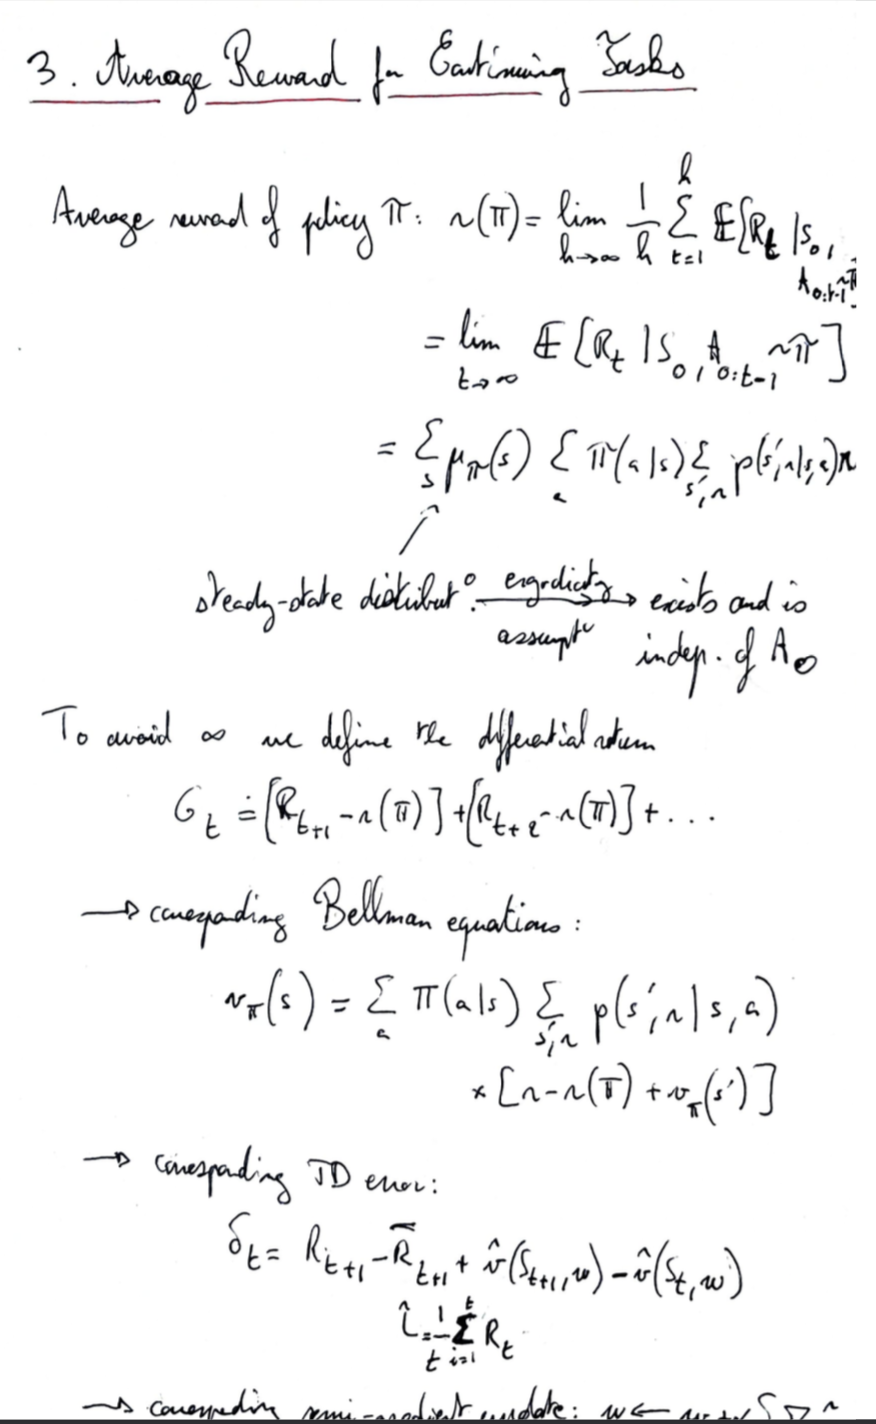 3. Average Reward for Continuing Tasks
Average reward of policy π: r(π) = lim_{h→∞} 1/h Σ_{t=1}^{h} 𝔼[R_t | S_0, A_{0:t-1} ~ π]
= lim_{t→∞} 𝔼[R_t | S_0, A_{0:t-1} ~ π]
= Σ_s μ_π(s) Σ_a π(a|s) Σ_{s',r} p(s',r|s,a) r
steady-state distribut° ergodicity assumpt° → exists and is
indep. of A_0
To avoid ∞ we define the differential return
G_t ≐ [R_{t+1} - r(π)] + [R_{t+2} - r(π)] + ...
→ corresponding Bellman equations:
v_π(s) = Σ_a π(a|s) Σ_{s',r} p(s',r|s,a)
× [r - r(π) + v_π(s')]
→ corresponding TD error:
δ_t = R_{t+1} - R̄_{t+1} + v̂(S_{t+1}, w) - v̂(S_t, w)
= 1/t Σ_{i=1}^{t} R_t
→ corresponding semi-gradient update: w ←